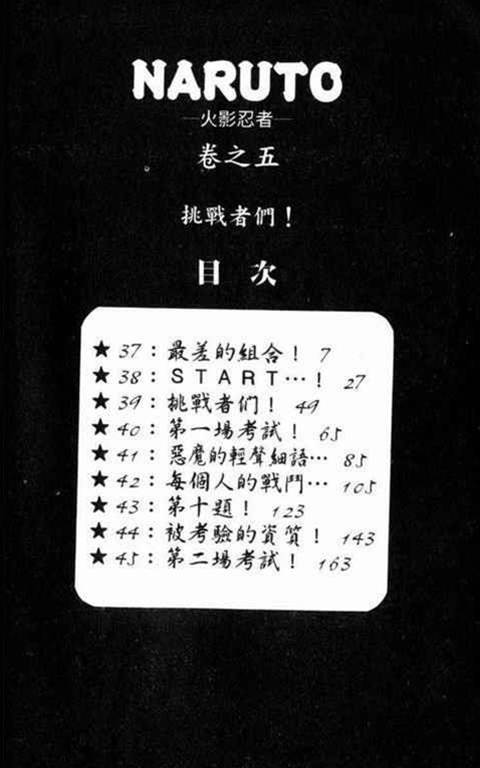 NARUTO
—火影忍者—
卷之五
挑戰者們！
目 次
★ 37：最差的組合！ 7
★ 38：START…！ 27
★ 39：挑戰者們！ 49
★ 40：第一場考試！ 65
★ 41：惡魔的輕聲細語… 85
★ 42：每個人的戰鬥… 105
★ 43：第十題！ 123
★ 44：被考驗的資質！ 143
★ 45：第二場考試！ 163